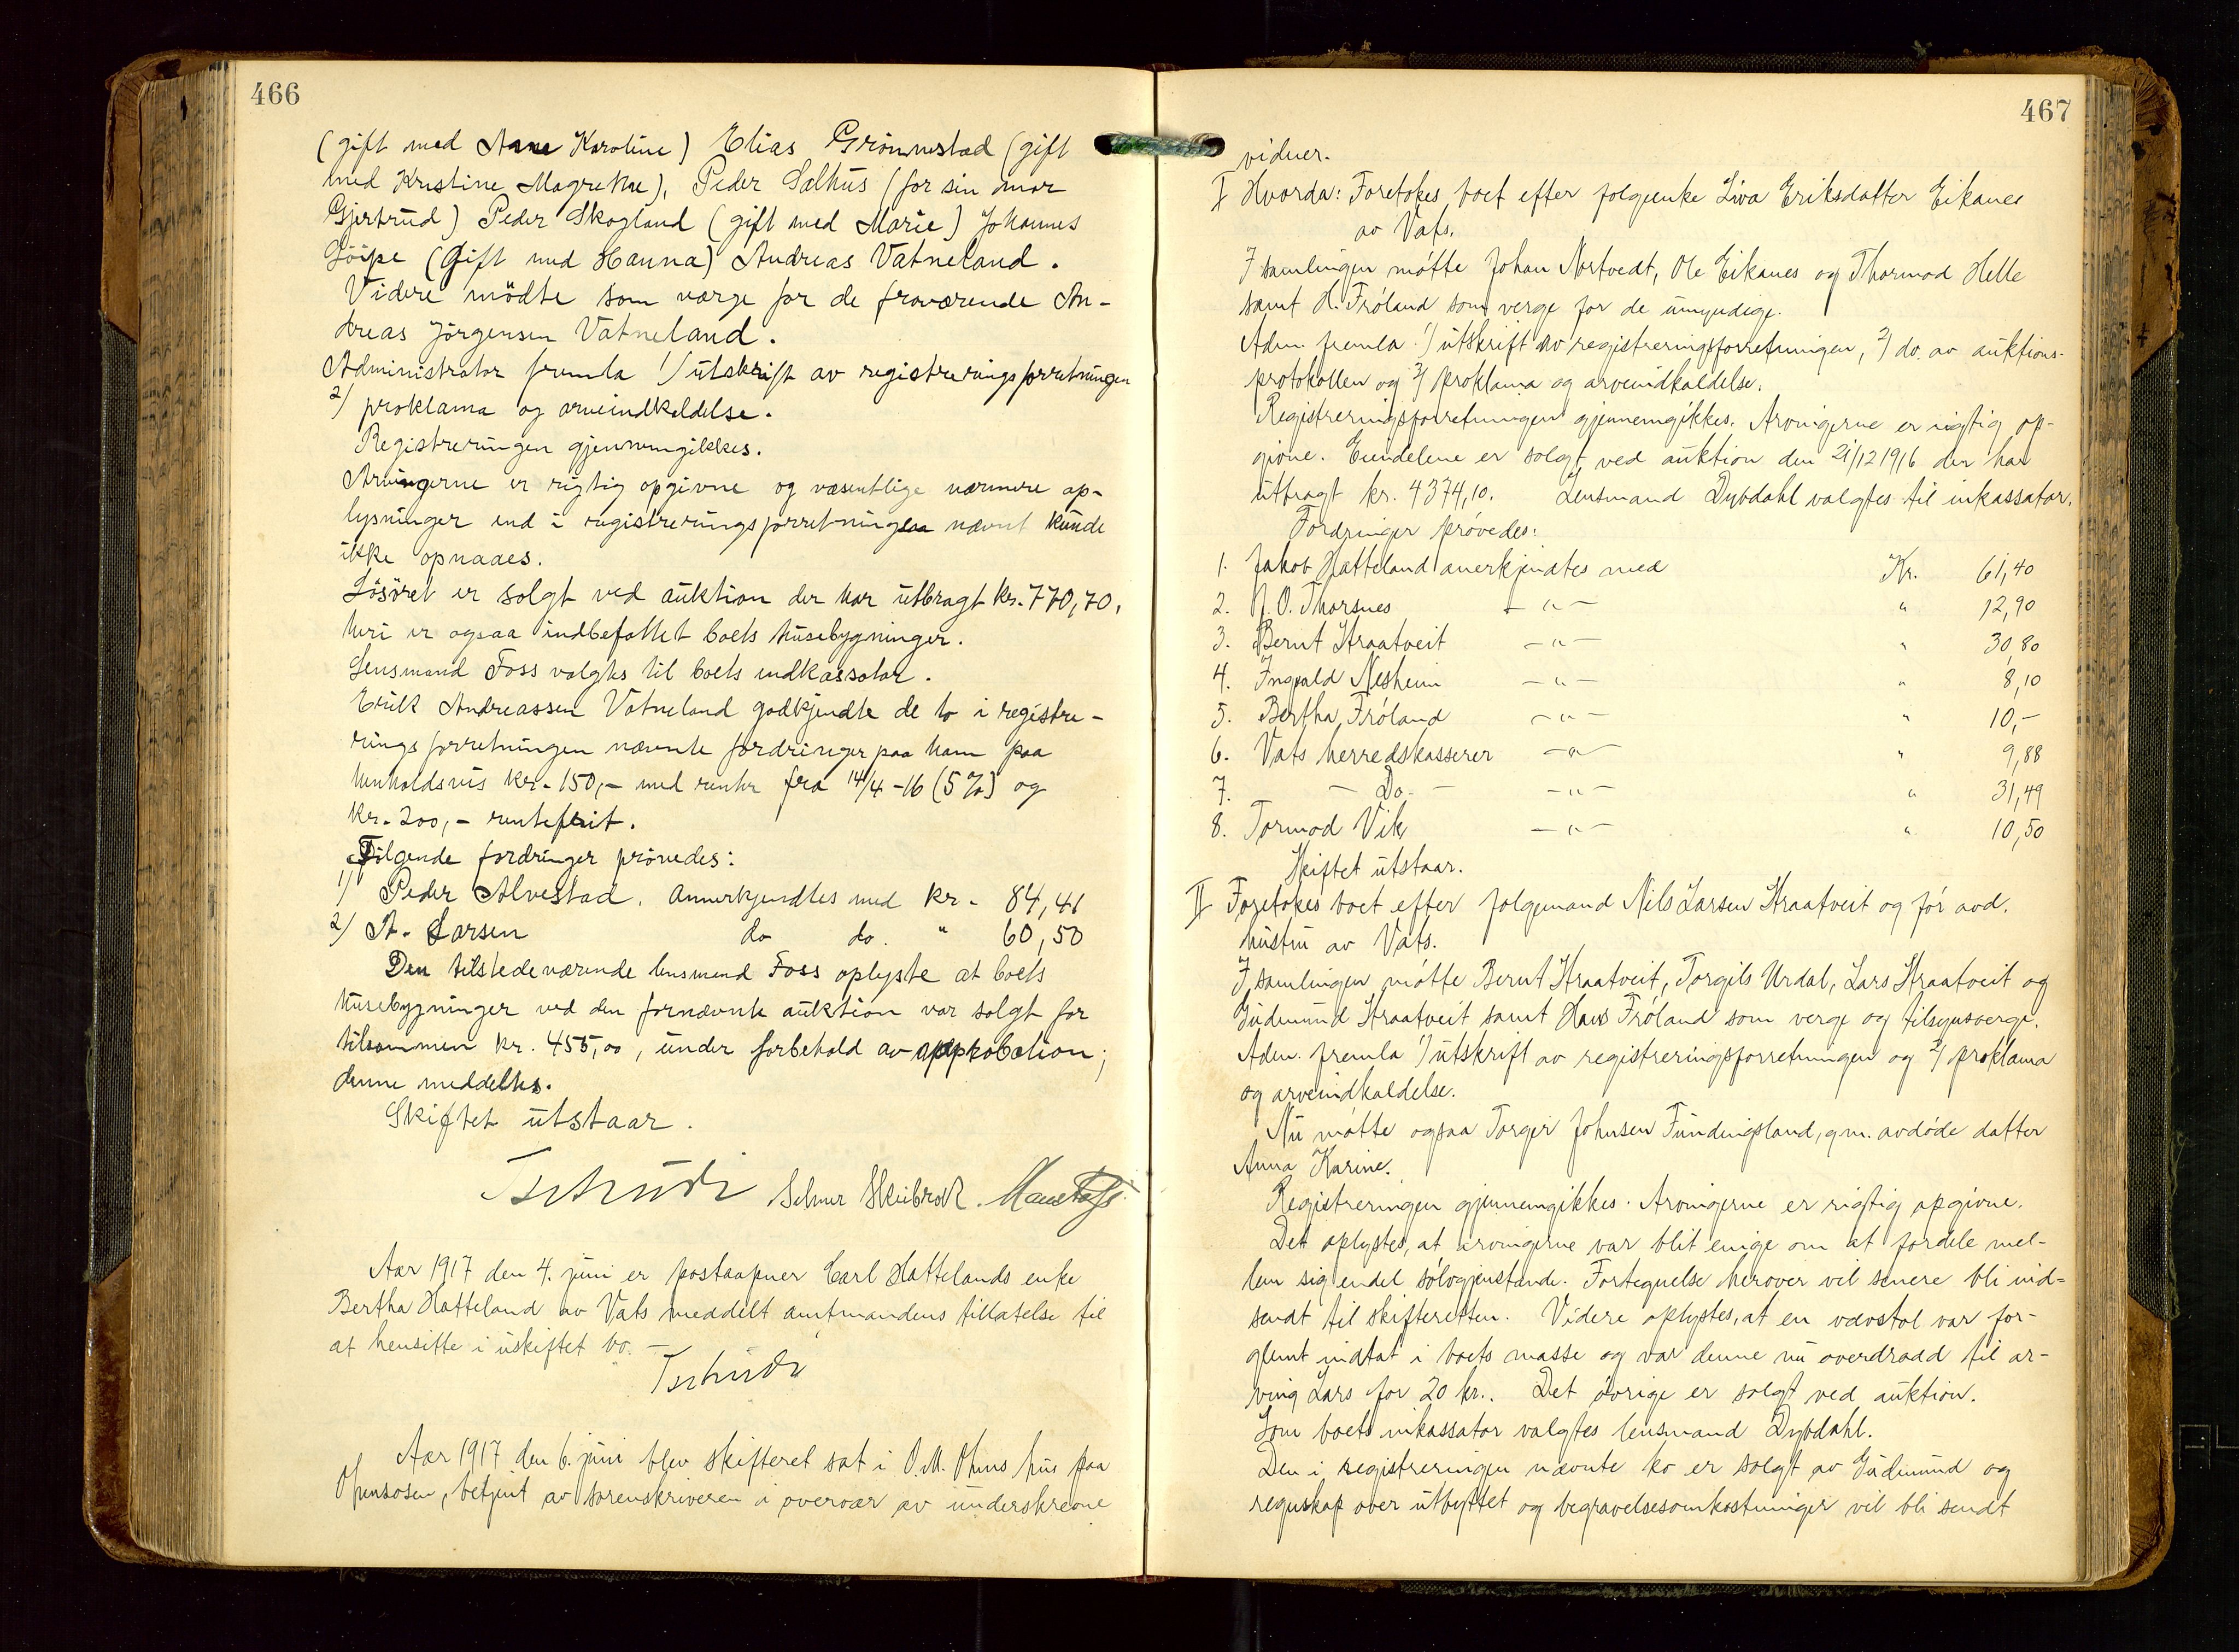 466
(gift med Anne Karoline) Elias Grönnestad (gift
med Kristine Magrethe), Peder Salhus (for sin mor
Gjertrud) Peder Skogland (gift med Marie) Johannes
Löipe (gift med Hanna) Andreas Vatneland.
Videre mödte som værge for de fraværende An-
dreas Jörgensen Vatneland.
Administrator fremla 1/ utskrift av registreringsforretningen
2/ proklama og arveindkaldelse.
Registreringen gjennemgikkes.
Arvingerne er rigtig opgivne og væsentlige nærmere op-
lysninger end i registreringsforretningen nævnt kunde
ikke opnaaes.
Lösöret er solgt ved auktion der har utbragt kr. 770,70,
heri er ogsaa indbefattet boets husebygninger.
Lensmand Foss valgtes til boets indkassator.
Erik Andreassen Vatneland godkjendte de to i registre-
ringsforretningen nævnte fordringer paa ham paa
henholdsvis kr. 150,- med renter fra 14/4-16 (5%) og
kr. 200,- rentefrit.
Fölgende fordringer prövedes:
1) Peder Alvestad. Annerkjendtes med kr. 84,41
2) A. Larsen do do. " 60,50
Den tilstedeværende lensmand Foss oplyste at boets
husebygninger ved den fornævnte auktion var solgt for
tilsammen kr. 455,00, under forbehold av approbation;
denne meddeltes.
Skiftet utstaar.
Tschudi Selmer Skeibrok. Hans Foss.
Aar 1917 den 4. juni er postaapner Carl Hattelands enke
Bertha Hatteland av Vats meddelt amtmandens tillatelse til
at hensitte i uskiftet bo. -
Tschudi
Aar 1917 den 6. juni blev skifteret sat i O.M. Ølens hus paa
Ølensosen, betjent av sorenskriveren i overvær av underskrevne
467
vidner.
I Hvorda: Foretokes boet efter folgeenke Siva Eriksdatter Eikanes
av Vats.
I samlingen møtte Johan Nortvedt, Ole Eikanes og Thormod Helle
samt H. Frøland som verge for de umyndige.
Adm. fremla 1/ utskrift av registreringsforretningen, 2/ do. av auktions-
protokollen og 3/ proklama og arveindkaldelse.
Registreringsforretningen gjennemgikkes. Arvingerne er rigtig op-
givne. Eiendelene er solgt ved auktion den 21/12 1916 der har
utbragt kr. 4374,10. Lensmand Dybdahl valgtes til inkassator.
Fordringer prøvedes:
1. Jakob Hatteland anerkjendtes med Kr. 61,40
2. N. O. Thorsnes - " - " 12,90
3. Bernt Straatveit - " - " 30,80
4. Ingvald Nesheim - " - " 8,10
5. Bertha Frøland - " - " 10,-
6. Vats herredskasserer - " - " 9,88
7. - Do. - - " - " 31,49
8. Tormod Vik - " - " 10,50
Skiftet utstaar.
II Foretokes boet efter folgemand Nils Larsen Straatveit og før avd.
hustru av Vats.
I samlingen møtte Bernt Straatveit, Torgils Urdal, Lars Straatveit og
Gudmund Straatveit samt Hans Frøland som verge og tilsynsverge.
Adm. fremla 1/ utskrift av registreringsforretningen og 2/ proklama
og arveindkaldelse.
Nu møtte ogsaa Torger Johnsen Fundingsland, g.m. avdøde datter
Anna Karine.
Registreringen gjennemgikkes. Arvingerne er rigtig opgivne.
Det oplystes, at arvingerne var blit enige om at fordele mel-
lem sig endel sølvgjenstande. Fortegnelse herover vil senere bli ind-
sendt til skifteretten. Videre oplystes, at en vævstol var for-
glemt indtat i boets masse og var denne nu overdrad til ar-
ving Lars for 20 kr.. Det øvrige er solgt ved auktion.
Som boets inkassator valgtes lensmand Dybdahl.
Den i registreringen nævnte ko er solgt av Gudmund og
regnskap over utbyttet og begravelsesomkostninger vil bli sendt